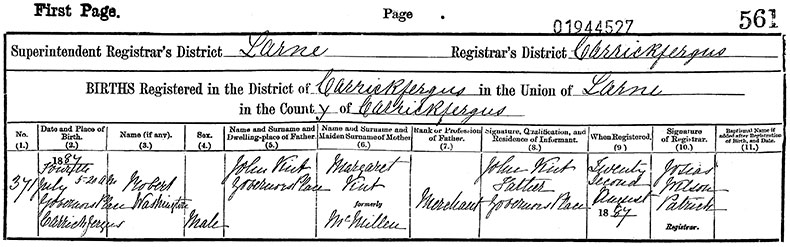 First Page.
Page
01944527
561
Superintendent Registrar's District Larne Registrar's District Carrickfergus
BIRTHS Registered in the District of Carrickfergus in the Union of Larne
in the County of Carrickfergus
No. Date and Place of Birth. Name (if any). Sex. Name and Surname and Dwelling-place of Father. Name and Surname and Maiden Surname of Mother. Rank or Profession of Father. Signature, Qualification, and Residence of Informant. When Registered. Signature of Registrar. Baptismal Name if added after Registration of Birth, and Date.
(1.) (2.) (3.) (4.) (5.) (6.) (7.) (8.) (9.) (10.) (11.)
371
1887
Fourth
July 5-20 AM
Governors Place
Carrickfergus
Robert
Washington
Male
John Kirk
Governors Place
Margaret
Kirk
formerly
McMillen
Merchant
John Kirk
Father
Governors Place
Twenty
Second
August
1887
Josias
Wilson
Patrick
Registrar.